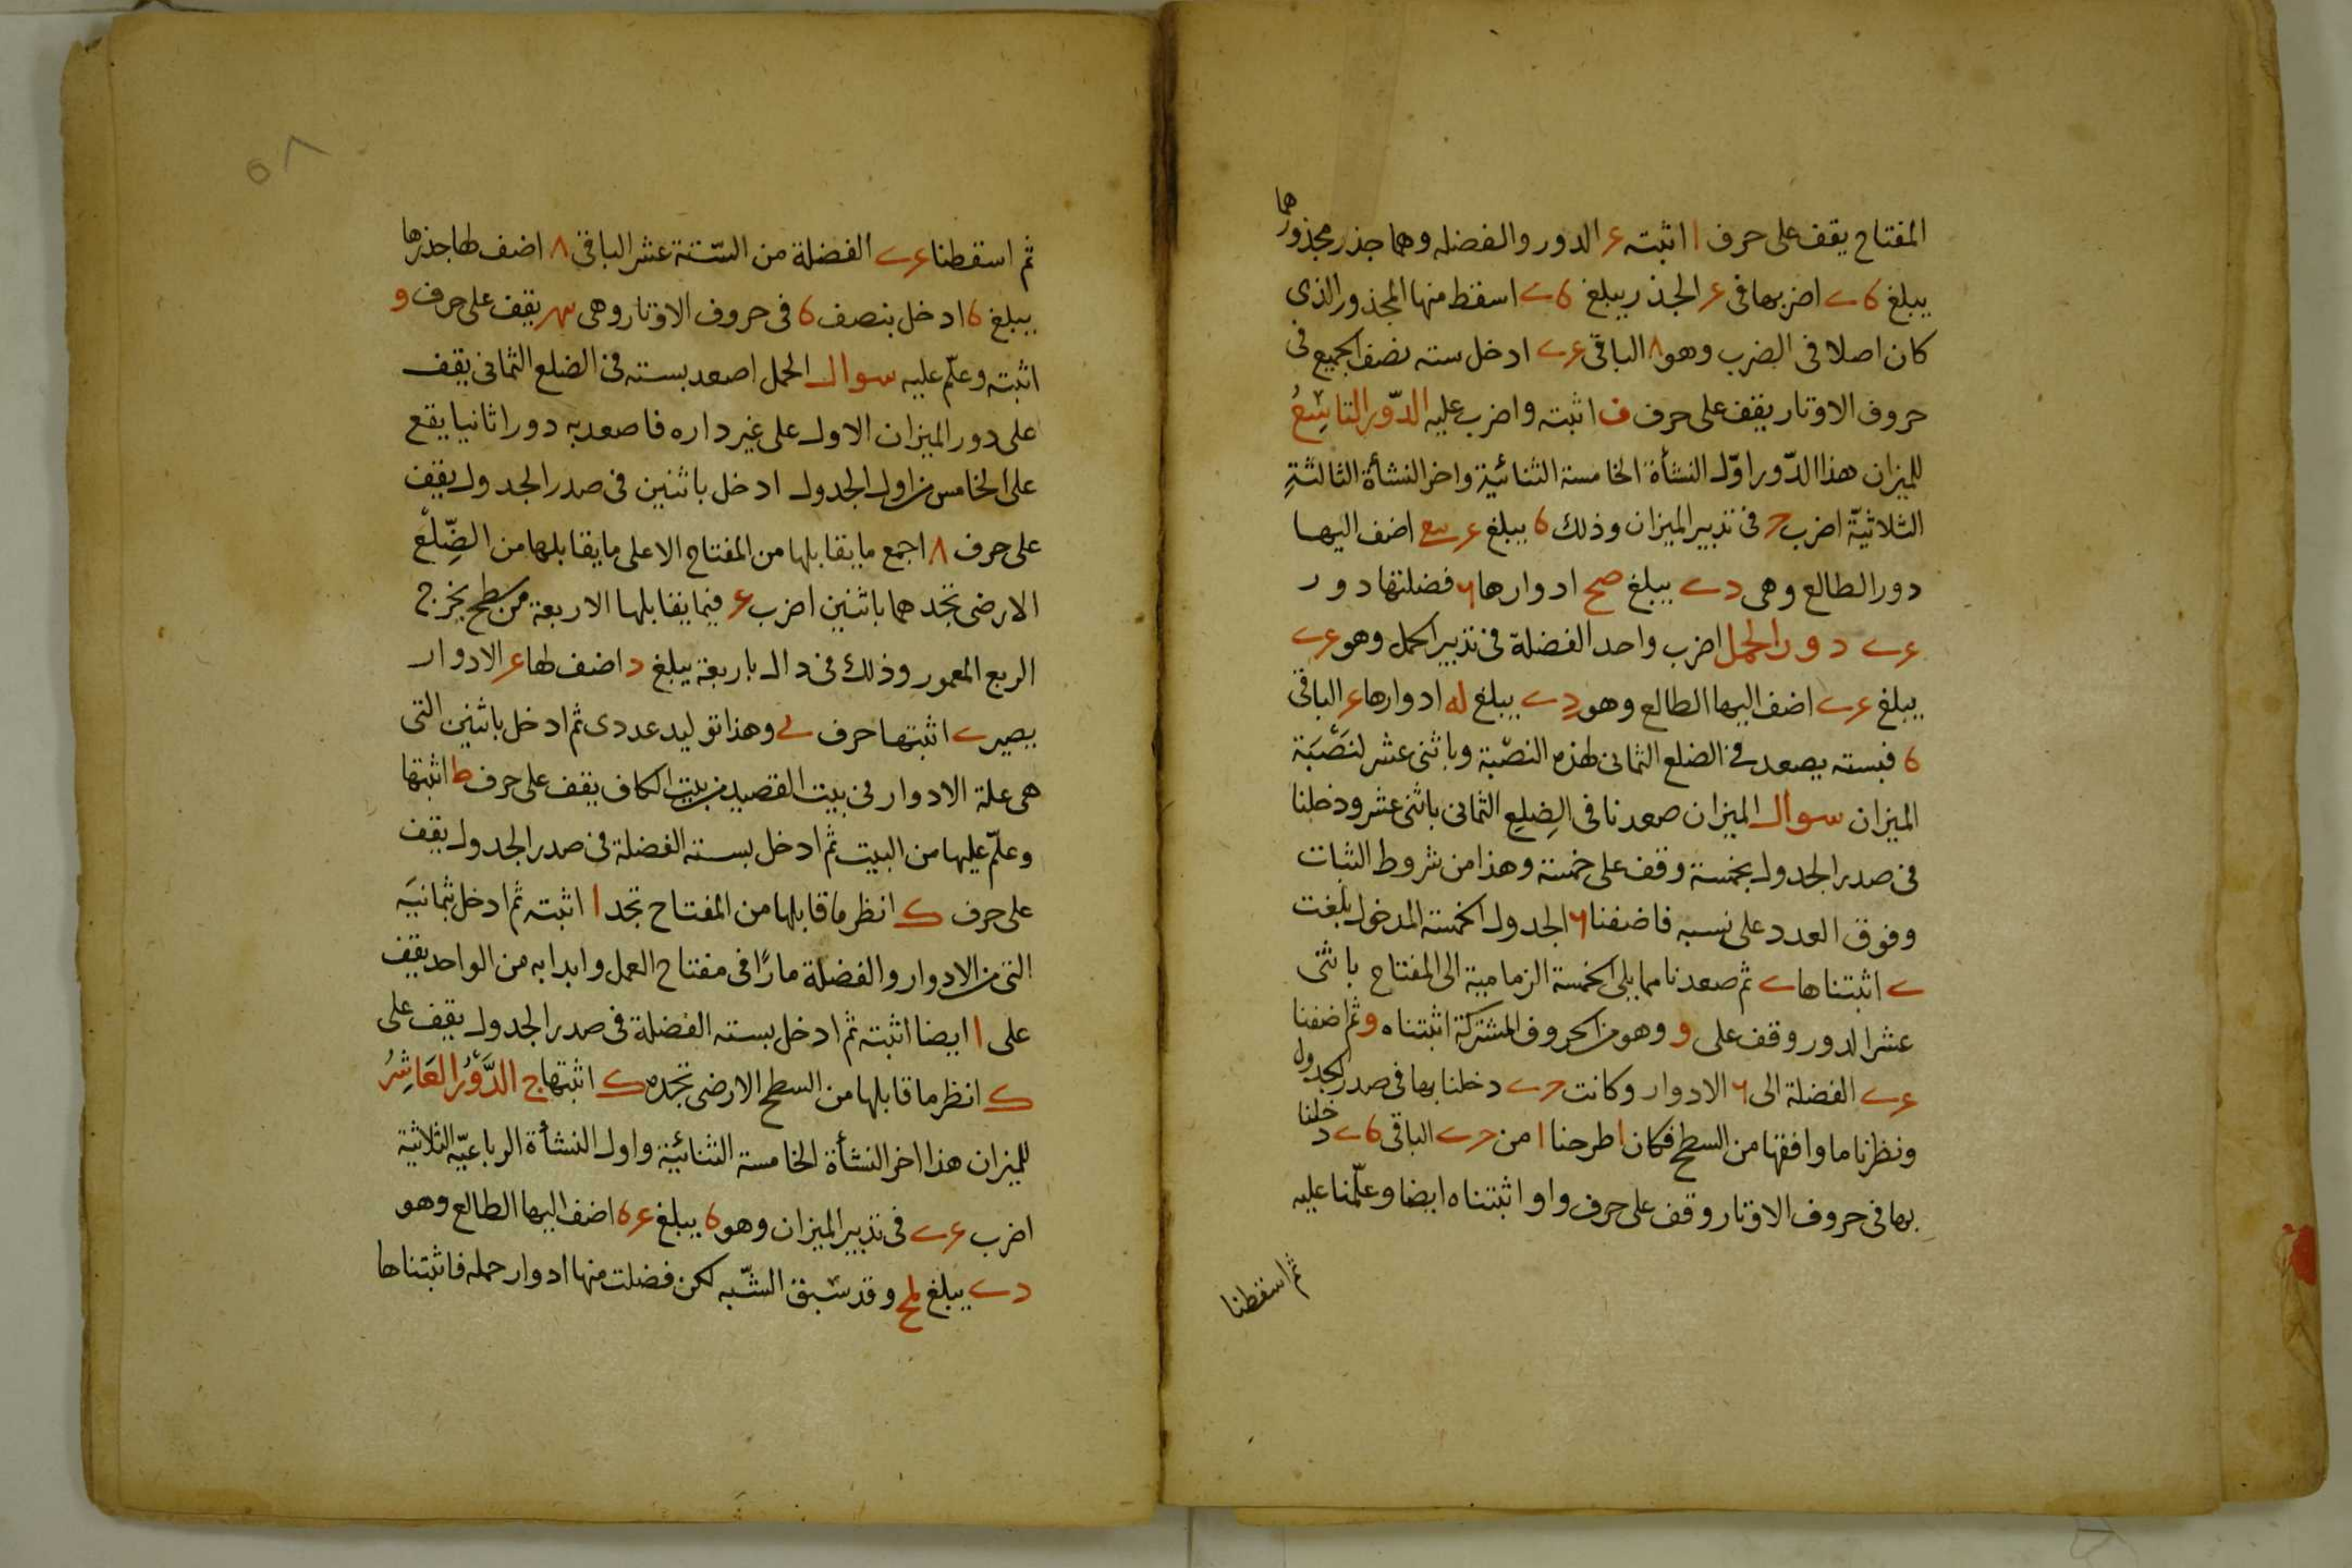 المفتاح يقف على حرف ا اثبته ع الدور والفضله وهما جذر مجذورهما
يبلغ 6 ے اضربها فى ع الجذر يبلغ 6 ے اسقط منها المجذور الذى
كان اصلا فى الضرب وهو ٨ الباقى ع ے ادخل سته نصف الجميع فى
حروف الاوتار يقف على حرف ف اثبته واضرب عليه الدّور التاسِعُ
للميزان هذا الدّور اوّل النشأة الخامسة الثنائية واخر النشأة الثالثةِ
الثلاثيّة اضرب فى تدبير الميزان وذلك 6 يبلغ اضف اليها
دور الطالع وهى د ے يبلغ صح ادوارها ٦ فضلتها د و ر
ع ے دور الحمل اضرب واحد الفضلة فى تدبير الحمل وهو ع ے
يبلغ ع ے اضف اليها الطالع وهو د ے يبلغ له ادوارها ع الباقى
6 فبسته يصعد فى الضلع الثمانى لهذه النصْبة وباثنى عشر لنَصْبَة
الميزان سوال الميزان صعدنا فى الضِلعِ الثمانى باثنى عشر ودخلنا
فى صدر الجدول بخمسة وقف على خمسة وهذا من شروط الثبات
وفوق العدد على نسبه فاضفنا ٦ الجدول الخمسة المدخول بلغت
ے اثبتناها ے ثم صعدنا مما يلى الخمسة الزمامية الى المفتاح باثنى
عشر الدور وقف على و وهو من الحروف المشتركة اثبتناه و ثم اضفنا
ع ے الفضلة الى ٦ الادوار وكانت ے دخلنا بها فى صدر الجدول
ونظرنا ما وافقها من السطح فكان ا طرحنا ا من ے الباقى 6 ے دخلنا
بها فى حروف الاوتار وقف على حرف واو اثبتناه ايضا وعلّمنا عليه
ثم اسقطنا
ثم اسقطنا ع ے الفضلة من السّتة عشر الباقى ٨ اضف لها جذرها
يبلغ 6 ادخل بنصف 6 فى حروف الاوتار وهى يقف على حرف و
اثبته وعلّم عليه سوال الحمل اصعد بسته فى الضلع الثمانى يقف
على دور الميزان الاول على غير داره فاصعد به دورا ثانيا يقع
على الخامس من اول الجدول ادخل باثنين فى صدر الجدول يقف
على حرف ٨ اجمع ما يقابلها من المفتاح الاعلى ما يقابلها من الضِّلْع
الارضى تجدهما باثنين اضرب ع فيما يقابلها الاربعة من سطح يخرج
الربع المعمور وذلك فى دال باربعة يبلغ د اضف لها ع الادوار
يصير ے اثبتها حرف ے وهذا توليد عددى ثم ادخل باثنين التى
هى علة الادوار فى بيت القصيد من بيت الكاف يقف على حرف ط اثبتها
وعلّم عليها من البيت ثم ادخل بسته الفضلة فى صدر الجدول يقف
على حرف ك انظر ما قابلها من المفتاح تجد ا اثبته ثم ادخل بثمانيَه
التى من الادوار والفضلة مارًا فى مفتاح العمل وابدا به من الواحد يقف
على ا ايضا اثبته ثم ادخل بسته الفضلة فى صدر الجدول يقف على
ك انظر ما قابلها من السطح الارضى تجده ك اثبتها ج الدَّوْرُ العَاشِرُ
للميزان هذا اخر النشأة الخامسة الثنائيّة واول النشأة الرباعيّه الثلاثية
اضرب ع ے فى تدبير الميزان وهو 6 يبلغ ع 6 اضف اليها الطالع وهو
د ے يبلغ لح وقد سبق الشّبه لكن فضلت منها ادوار حمله فاثبتناها
٥٨